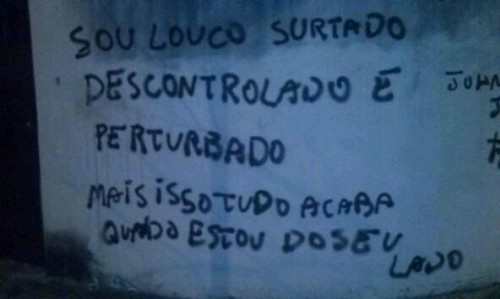 SOU LOUCO SURTADO
DESCONTROLADO E
PERTURBADO
MAIS ISSO TUDO ACABA
QUANDO ESTOU DO SEU
LADO